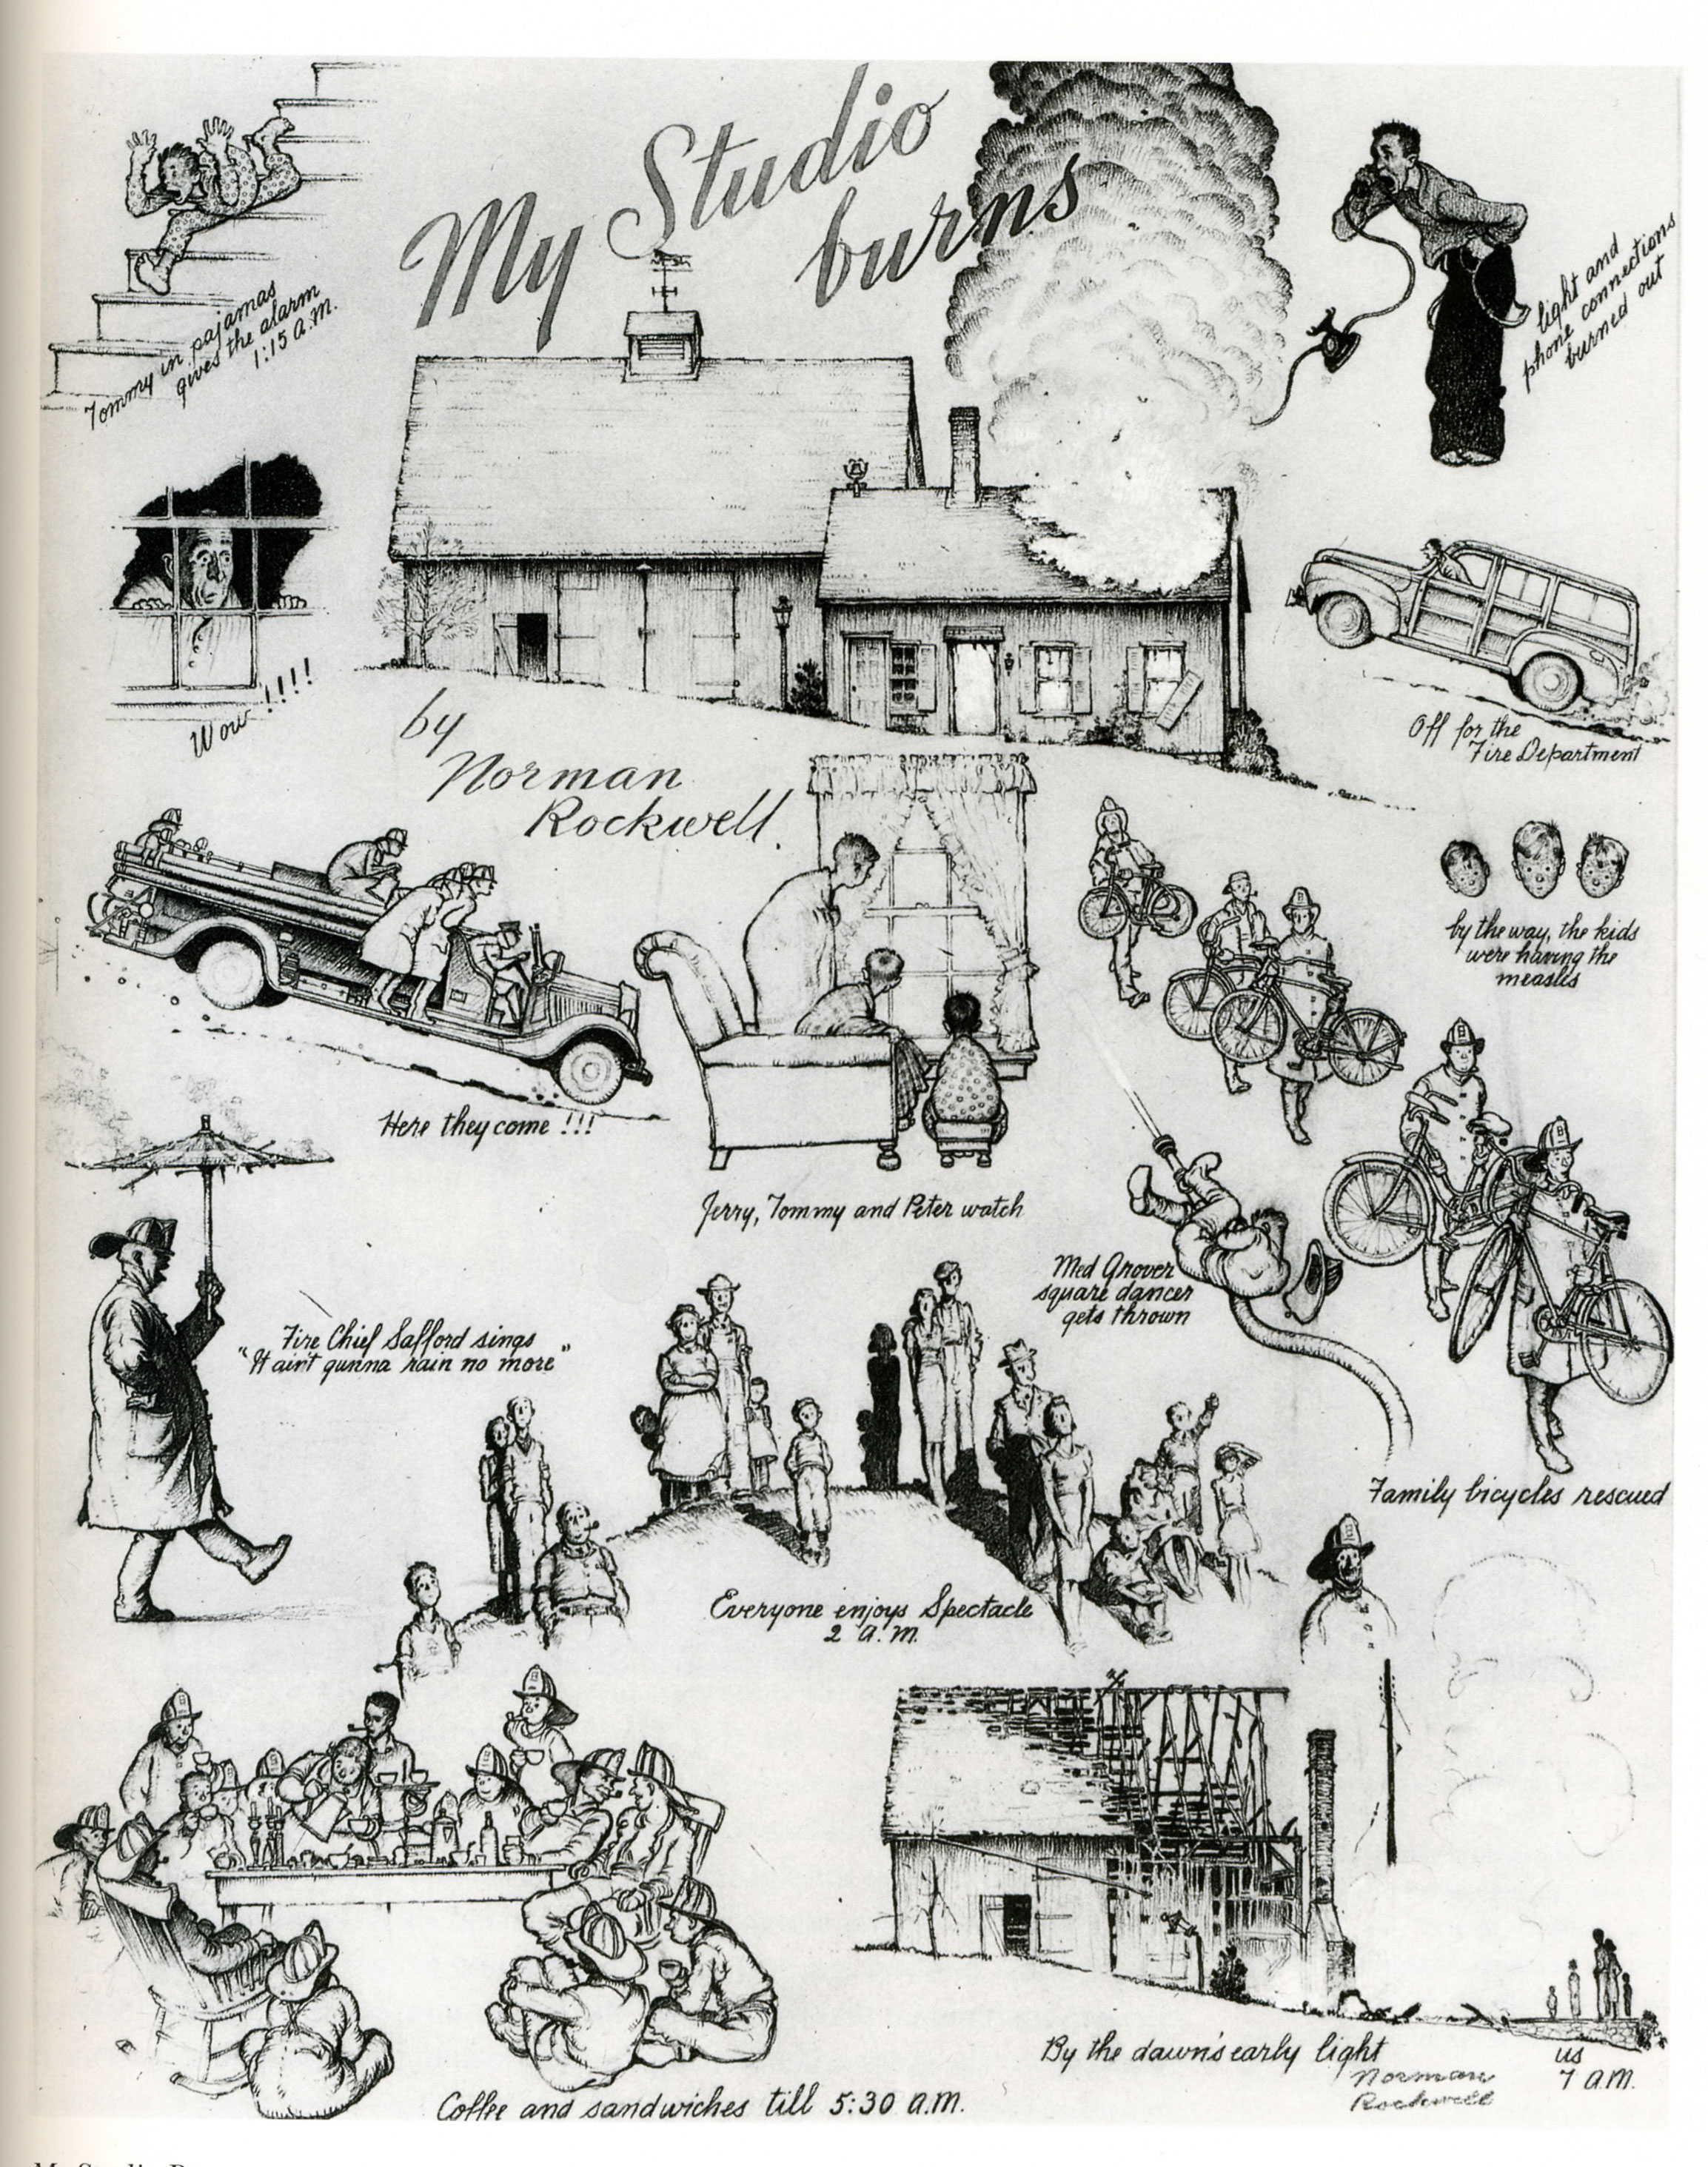 My Studio
burns
Tommy in pajamas
gives the alarm
1:15 A.M.
light and
phone connections
burned out
Wow !!!!
Off for the
Fire Department
by
Norman
Rockwell.
by the way, the kids
were having the
measles
Here they come !!!
Jerry, Tommy and Peter watch
Med Grover
square dancer
gets thrown
Fire Chief Safford sings
"It ain't gunna rain no more"
Family bicycles rescued
Everyone enjoys Spectacle
2 A.M.
By the dawn's early light
us
7 A.M.
Norman
Rockwell
Coffee and sandwiches till 5:30 A.M.